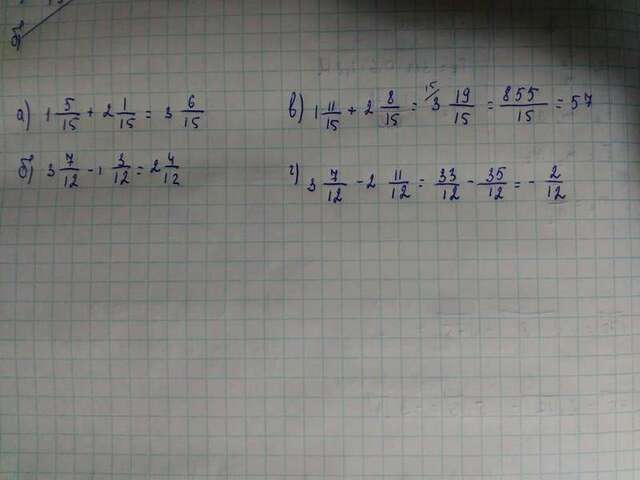 б)
а) 1 5/15 + 2 1/15 = 3 6/15
б) 3 7/12 - 1 3/12 = 2 4/12
в) 1 11/15 + 2 8/15 = 15/ 3 19/15 = 855/15 = 57
г) 3 7/12 - 2 11/12 = 33/12 - 35/12 = - 2/12